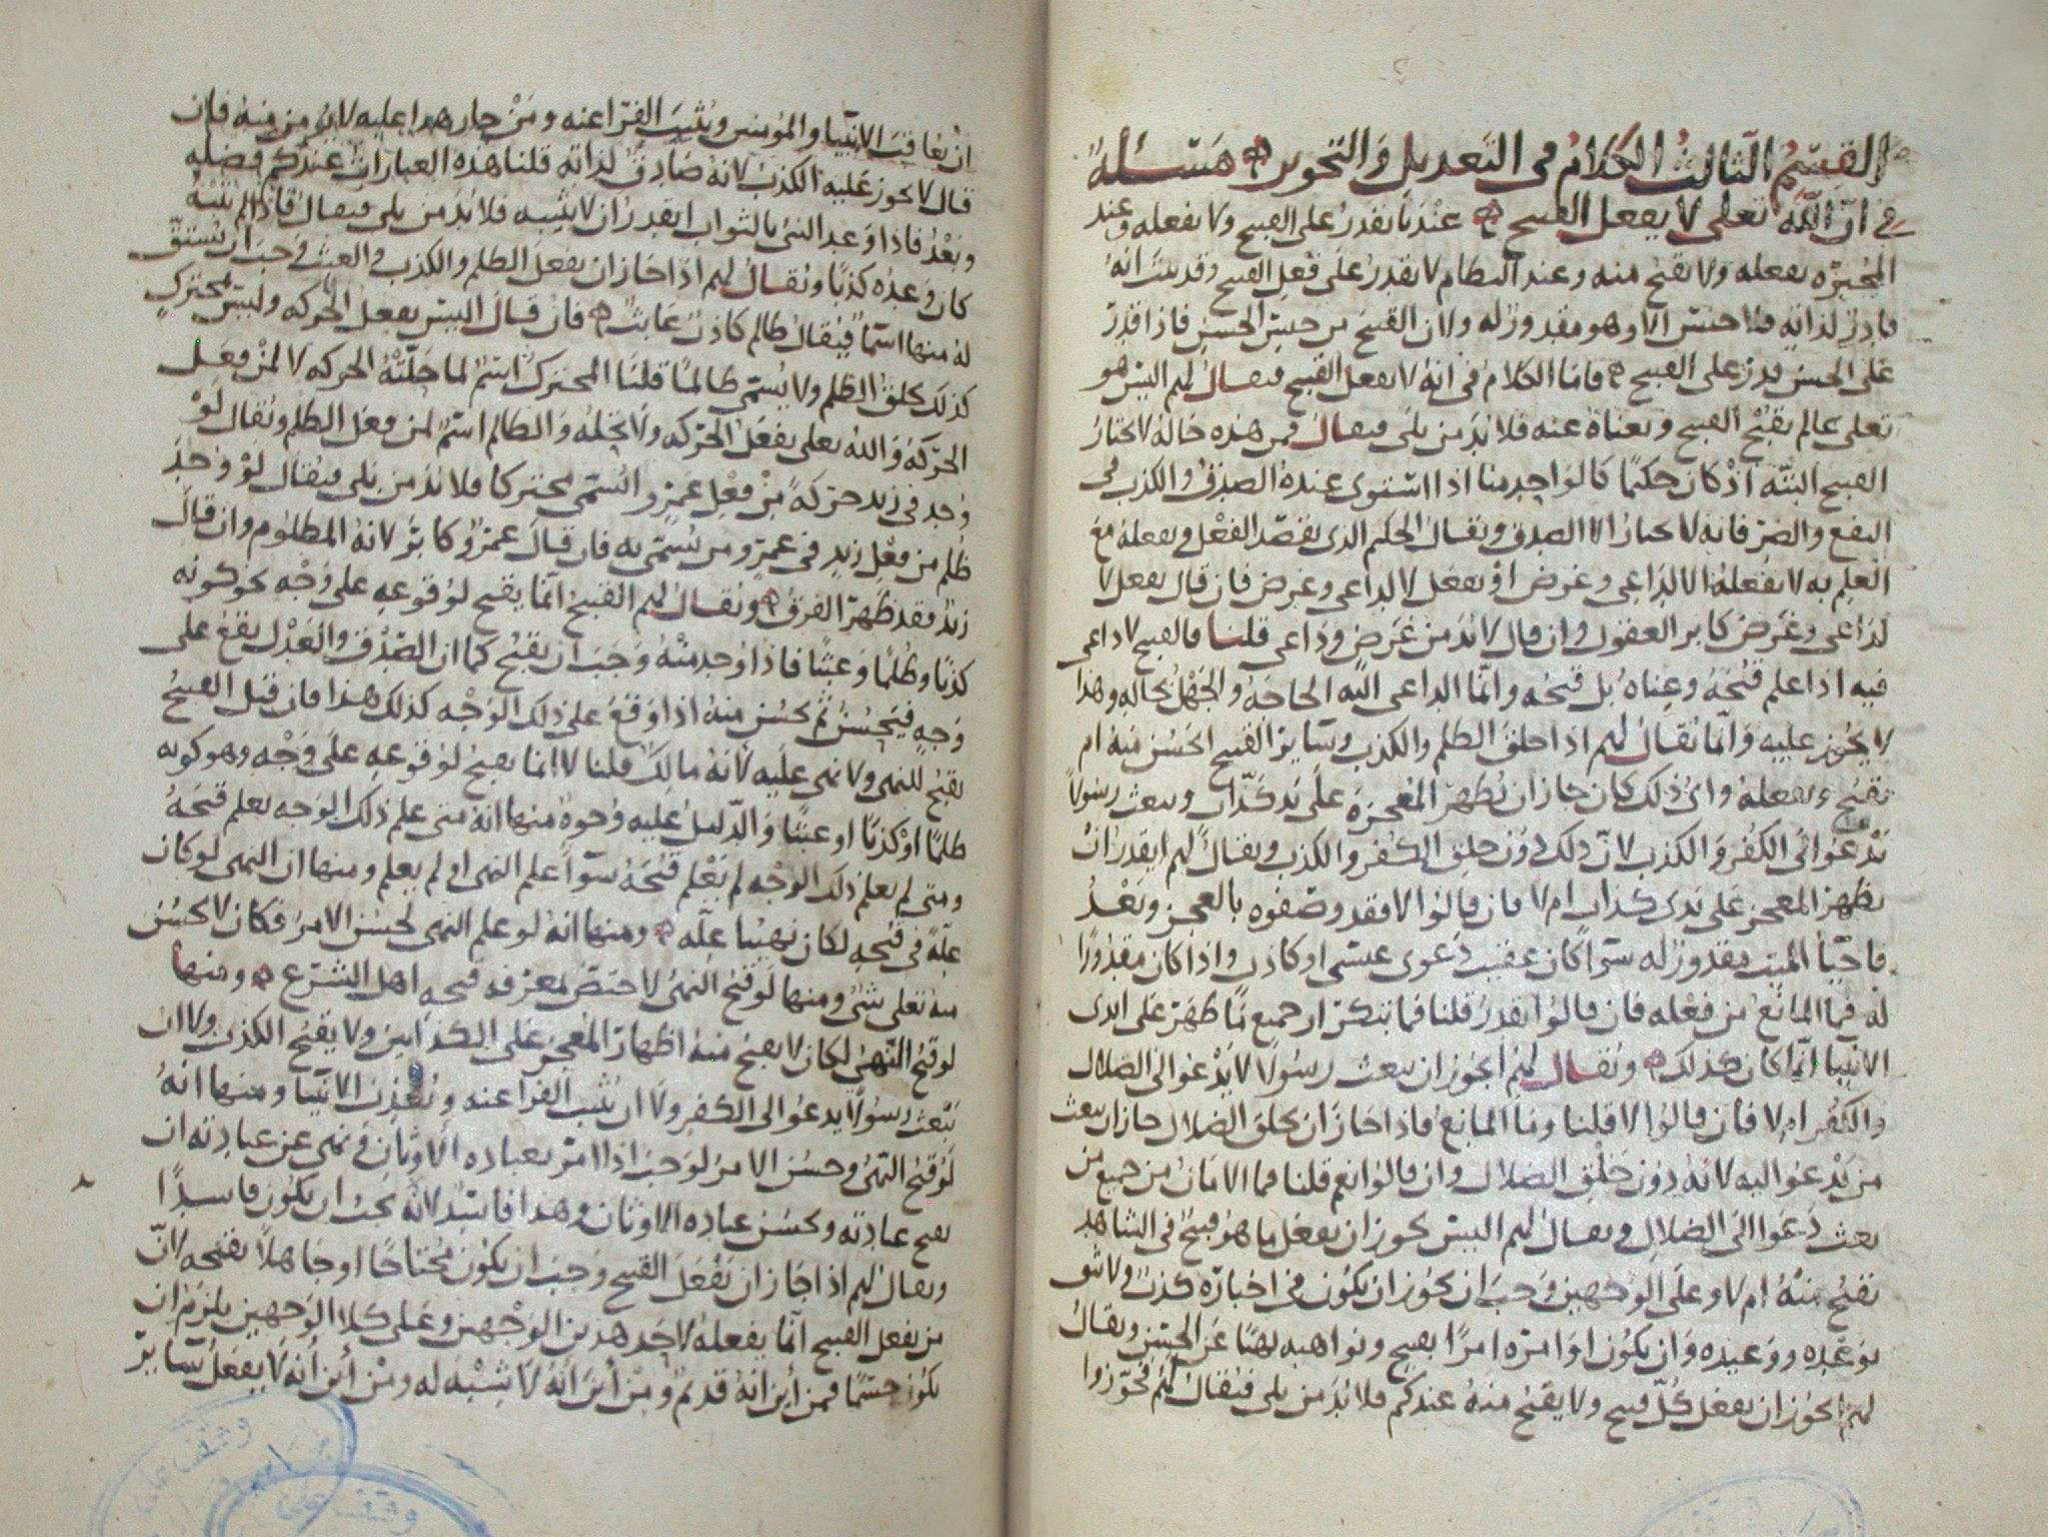 القسم الثالث الكلام في التعديل والتجوير مسئلة
في ان الله تعلى لا يفعل القبيح عندنا يقدر على القبيح ولا يفعله وعند
المجبرة يفعله ولا يقبح منه وعند النظام لا يقدر على فعل القبيح وقد بينا انه
قادر لذاته فلا جنس الا وهو مقدور له ولان القبيح من جنس الحسن فاذا قدر
على الحسن قدر على القبيح فاما الكلام في انه لا يفعل القبيح فيقال لهم اليس هو
تعلى عالم بقبح القبيح وبغناه عنه فلا بد من بلى فيقال فمن هذه حاله لا يختار
القبيح البتة اذ كان حكيما كالواحد منا اذا استوى عنده الصدق والكذب في
النفع والضر فانه لا يختار الا الصدق ويقال الحكيم الذي يقصد الفعل ويفعله مع
العلم به لا يفعله الا لداعي وغرض او يفعل لا لداعي وغرض فان قال يفعل لا
لداعي وغرض كابر العقول وان قال لا بد من غرض وداعي قلنا فالقبيح لا داعي
فيه اذا علم قبحه وغناه بل قبحه وانما الداعي اليه الحاجة والجهل بحاله وهذا
لا يجوز عليه وانما يقال لهم اذا خلق الظلم والكذب وساير القبيح ايحسن منه ام
يقبح ويفعله واي ذلك كان جاز ان يظهر المعجزة على يد كذاب ويبعث رسولا
يدعوا الى الكفر والكذب لان ذلك دون خلق الكفر والكذب ويقال لهم ايقدر ان
يظهر المعجز على يدي كذاب ام لا فان قالوا لا فقد وصفوه بالعجز وبعد
فاحيا الميت مقدور له سوا كان عقيب دعوى عيسى او كاذب واذا كان مقدورا
له فما المانع من فعله فان قالوا يقدر قلنا فما ينكر ان جميع ما ظهر على ايدي
الانبيا انما كان كذلك ويقال لهم ايجوز ان يبعث رسولا لا يدعوا الى الضلال
والكفر ام لا فان قالوا لا قلنا وما المانع فاذا جاز ان يخلق الضلال جاز ان يبعث
من يدعوا اليه لانه دون خلق الضلال وان قالوا نعم قلنا فما الامان من جميع من
بعث دعوا الى الضلال ويقال لهم اليس يجوز ان يفعل ما هو قبيح في الشاهد
يقبح منه ام لا وعلى الوجهين وجب ان يجوز ان يكون في اخباره كذب ولا نثق
بوعده ووعيده وان يكون اوامره امرا بقبيح ونواهيه نهيا عن الحسن ويقال
لهم ايجوز ان يفعل كل قبيح ولا يقبح منه عندكم فلا بد من بلى فيقال لهم فجوزوا
ان يعاقب الانبيا والمومنين ويثيب الفراعنه ومن جاز هذا عليه لا يؤمن منه فان
قال لا يجوز عليه الكذب لانه صادق لذاته قلنا هذه العبارات عندكم فضله
وبعد فاذا وعد النبي بالثواب ايقدر ان لا يثيبه فلا بد من بلى فيقال فاذا لم يثبه
كان وعده كذبا ويقال لهم اذا جاز ان يفعل الظلم والكذب والعبث وجب ان يشتق
له منها اسما فيقال ظالم كاذب عابث فان قال اليس يفعل الحركه وليس بمتحرك
كذلك يخلق الظلم ولا يسمى ظالما قلنا المتحرك اسم لما حلته الحركه لا لمن فعل
الحركة والله تعلى يفعل الحركه ولا تحله والظالم اسم لمن فعل الظلم ويقال لو
وجد في زيد حركة من فعل عمرو اليسمى متحركا فلا بد من بلى فيقال لو وجد
ظلم من فعل زيد في عمرو من يسمى به فان قال عمرو كابر لانه المظلوم وان قال
زيد فقد ظهر الفرق ويقال لهم القبيح انما يقبح لوقوعه على وجه نحو كونه
كذبا وظلما وعبثا فاذا وجد منه وجب ان يقبح كما ان الصدق والعدل يقع على
وجه فيحسن ثم يحسن منه اذا وقع على ذلك الوجه كذلك هذا فان قيل القبيح
يقبح للنهي ولا نهي عليه لانه مالك قلنا لا انما يقبح لوقوعه على وجه وهو كونه
ظلما او كذبا او عبثا والدليل عليه وجوه منها انه متى علم ذلك الوجه يعلم قبحه
ومتى لم يعلم ذلك الوجه لم يعلم قبحه سوا علم النهي او لم يعلم ومنها ان النهي لو كان
علة في قبحه لكان نهينا علة ومنها انه لو علم النهي لحسن الامر فكان لا يحسن
منه تعلى شي ومنها لو قبح النهي لاختص معرفه قبحه اهل الشرع ومنها
لو قبح النهي لكان لا يقبح منه اظهار المعجز على الكذابين ولا يقبح الكذب ولا ان
يبعث رسولا يدعوا الى الكفر ولا ان يثيب الفراعنه ويعذب الانبيا ومنها انه
لو قبح النهي وحسن الامر لوجب اذا امر بعباده الاوثان ونهى عن عبادته ان
يقبح عبادته ويحسن عباده الاوثان وهذا فاسد لانه يجب ان يكون فاسدا
ويقال لهم اذا جاز ان يفعل القبيح وجب ان يكون محتاجا او جاهلا بقبحه لان
من يفعل القبيح انما يفعله لاحد هذين الوجهين وعلى كلا الوجهين يلزم ان
يكون جسما فمن اين انه قديم ومن اين انه لا شبه له ومن اين انه لا يفعل ساير